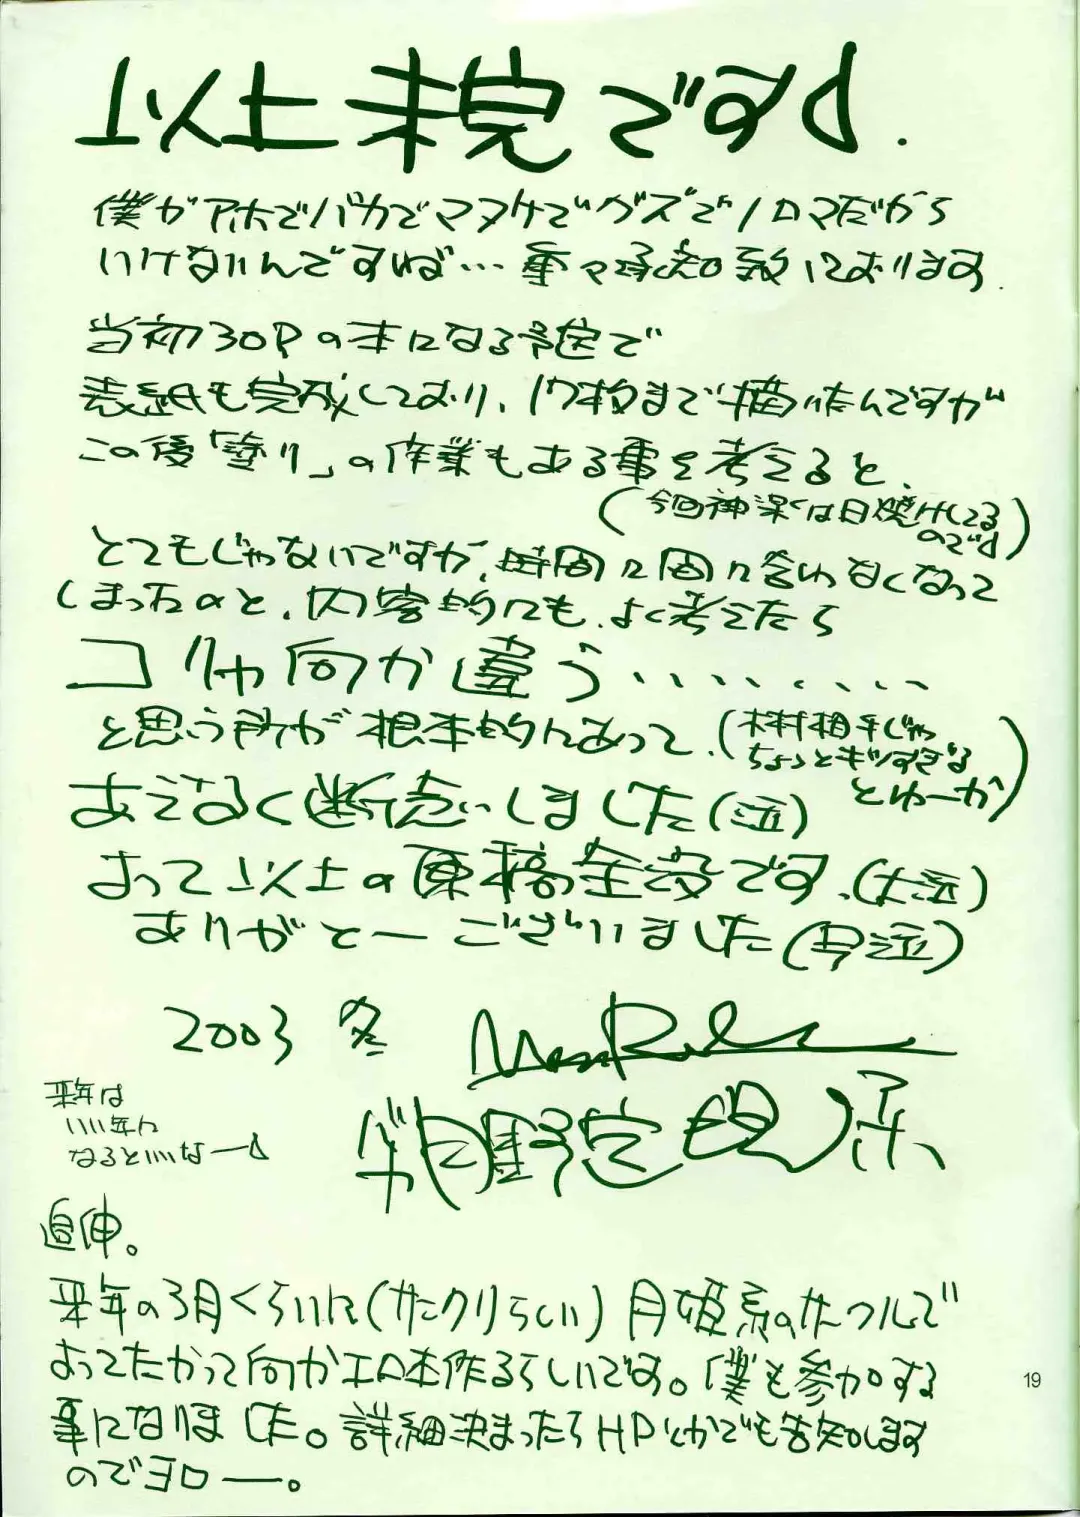 以上未完ですd.
僕がアホでバカでマヌケでグズでノロマだから
いけないんですねば…重々承知致しております.
当初30Pの本になる予定で
表紙も完成しており、17枚まで描いたんですが
この後「塗り」の作業もある事を考えると、
(今回神楽は日焼けしてる
のでd)
とてもじゃないですが、時間に間に合わなくなって
しまったのと、内容的にも、よく考えたら
コリャ何か違う………
と思う所が根本的にあって、(木村相手じゃ
ちょっとギツすぎる
とゆーか)
あえなく断念しました(泣)
よって以上の原稿全没です、(大泣)
ありがとーございました(号泣)
2003 冬
来年は
いい年に
なるといいなーd
追伸。
来年の3月くらいに(サンクリらしい)月姫系のサークルで
よってたかって何かエロ本作るらしいです。僕も参加する
事になりました。詳細決まったらHPとかでも告知します
のでヨロー。
19